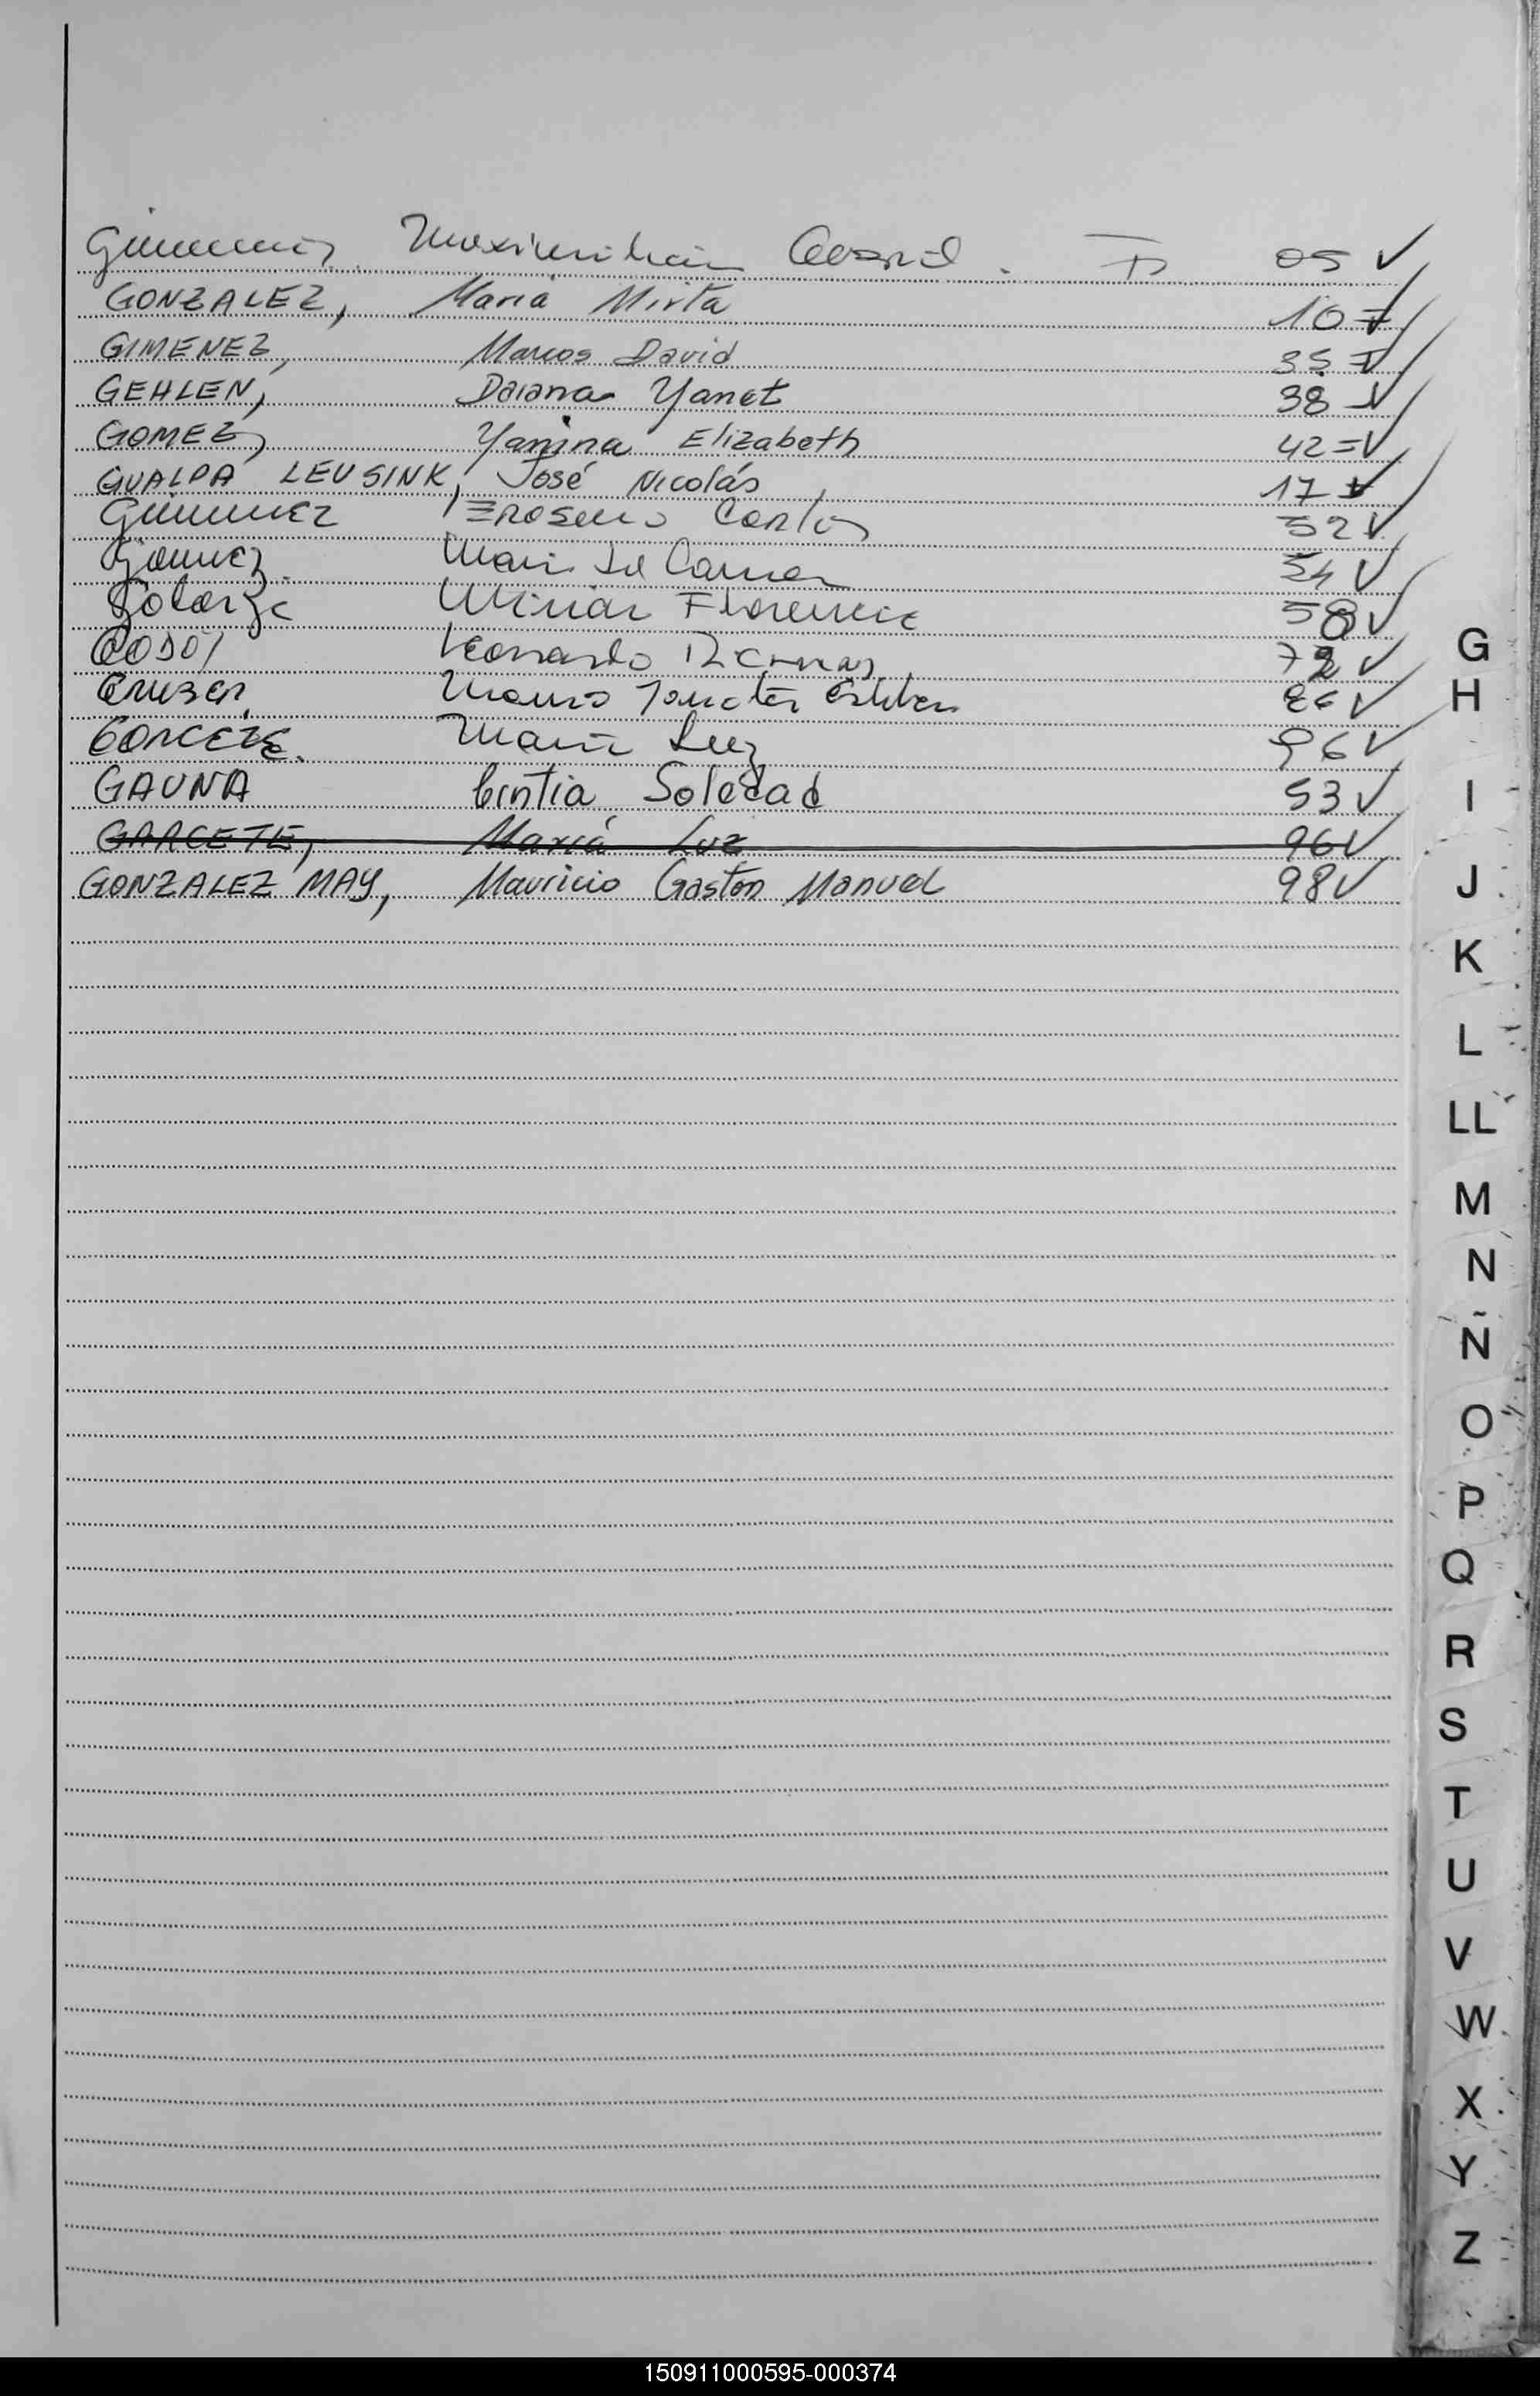 Gimenez Maximilian Gabriel. T 05 ✓
GONZALEZ, María Mirta 10 ✓
GIMENEZ, Marcos David 35 ✓
GEHLEN, Daiana Yanet 38 ✓
GOMEZ, Yanina Elizabeth 42 = ✓
GUALPA LEUSINK, José Nicolás 17 ✓
Gimenez Carlos 52 ✓
Gomez Mari Del Carmen 54 ✓
Miriar Florencia 58 ✓
GODOY Leonardo 72 ✓
Mauro Esteban ✓
GARCETE. María Luz 96 ✓
GAUNA Cintia Soledad 53 ✓
GARCETE, María Luz 96 ✓
GONZALEZ MAY, Mauricio Gastón Manuel 98 ✓
G
H
I
J
K
L
LL
M
N
Ñ
O
P
Q
R
S
T
U
V
W
X
Y
Z
150911000595-000374